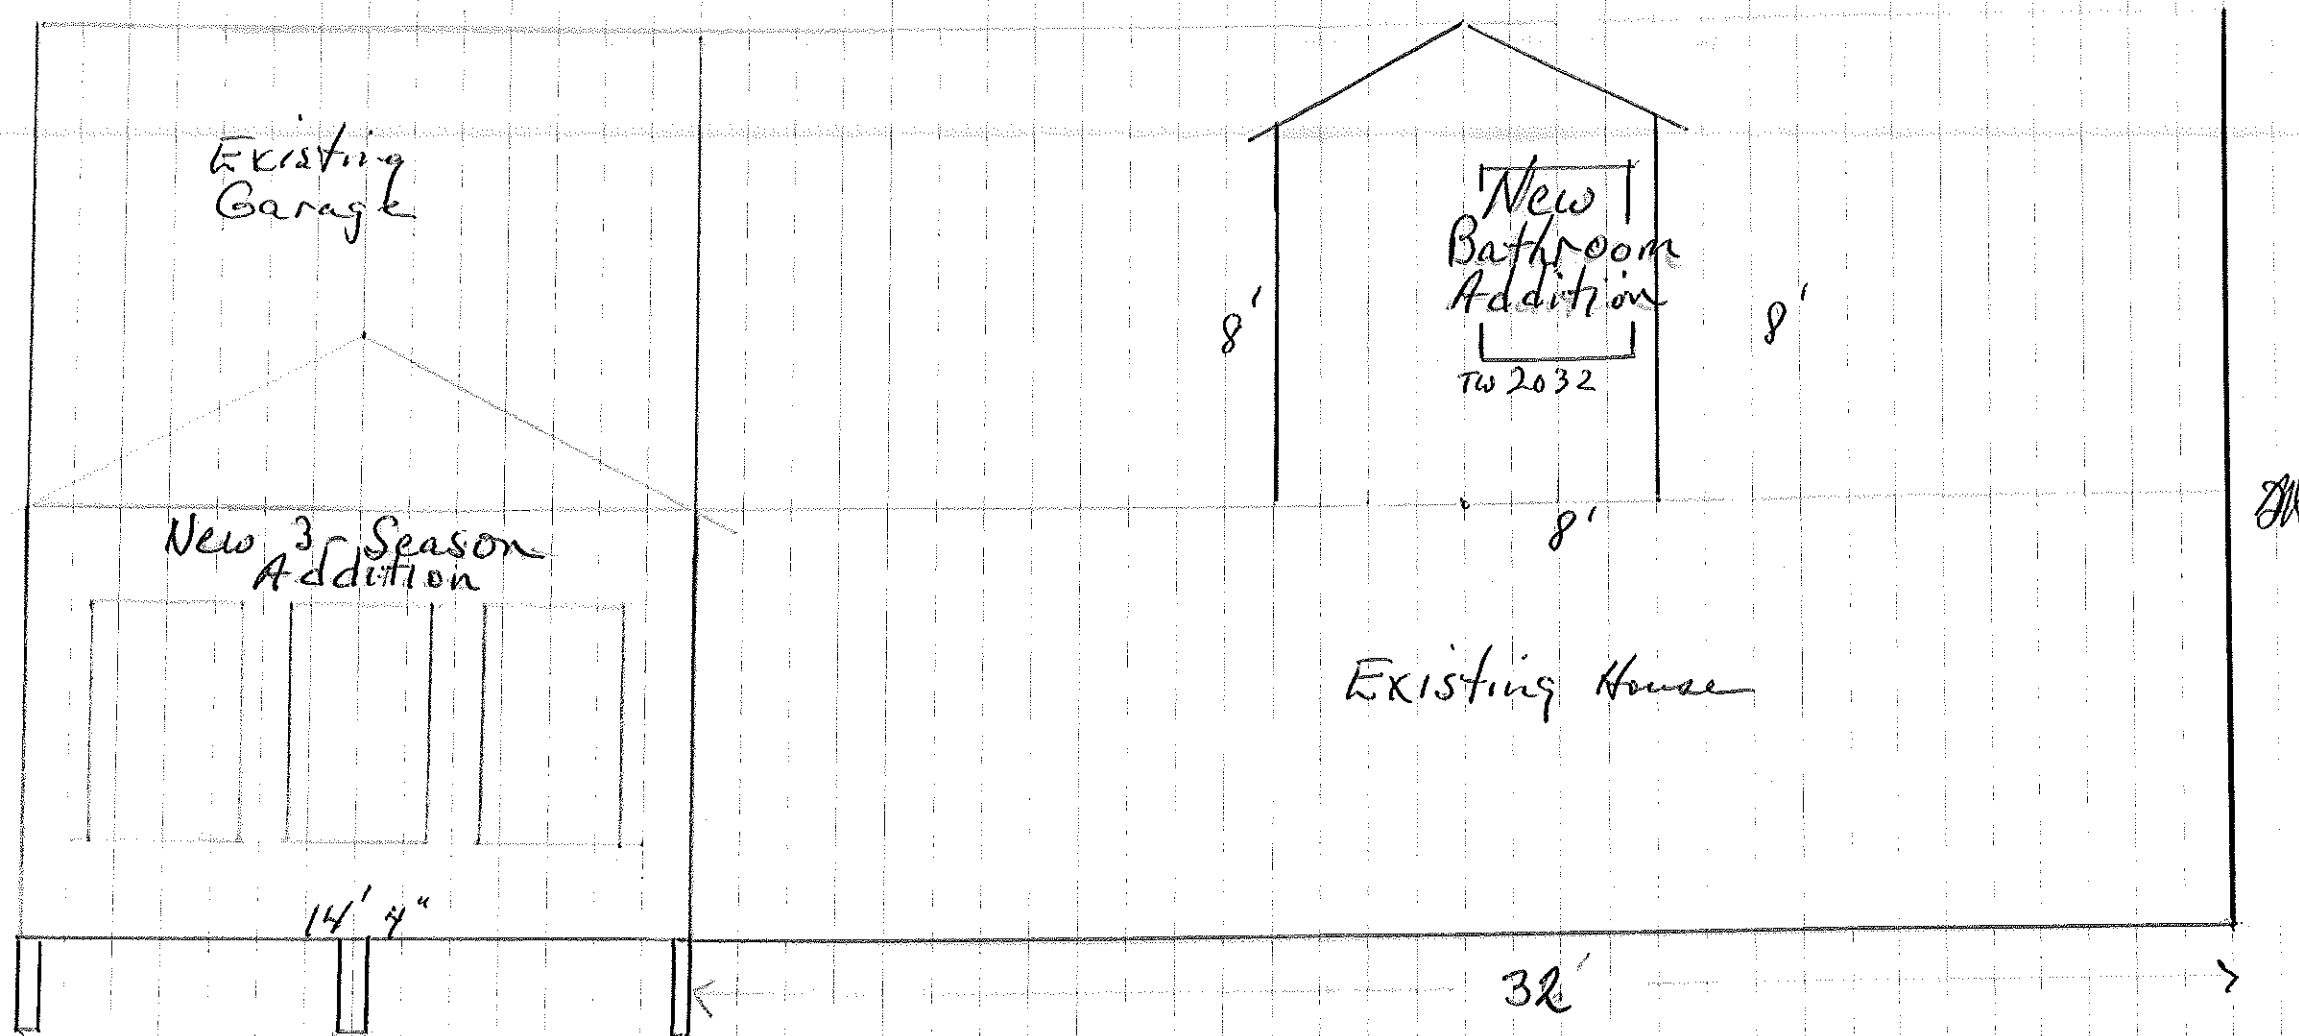 Existing
Garage
New
Bathroom
Addition
8'
8'
TW 2032
8'
New 3-Season
Addition
Existing House
14' 4"
32'